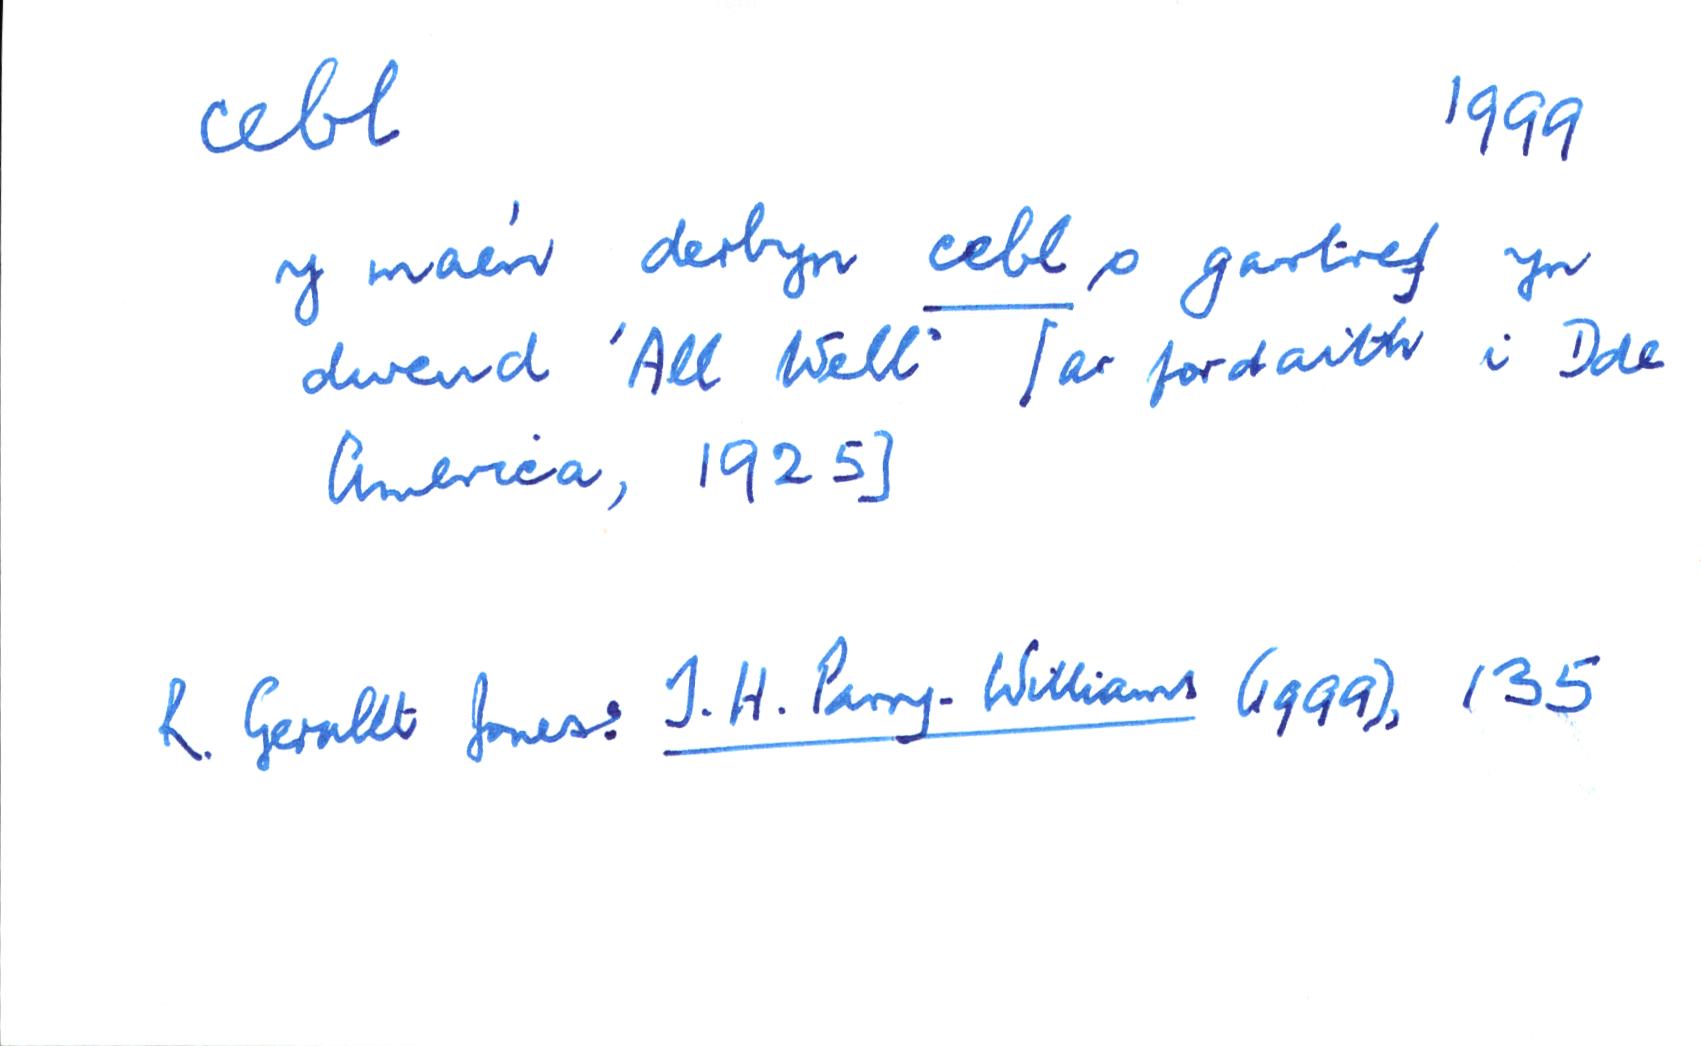 cebl 1999
y mae'n derbyn cebl o gartref yn
dweud 'All Well' [ar fordaith i Dde
America, 1925]
R. Gerallt Jones: T. H. Parry-Williams (1999), 135